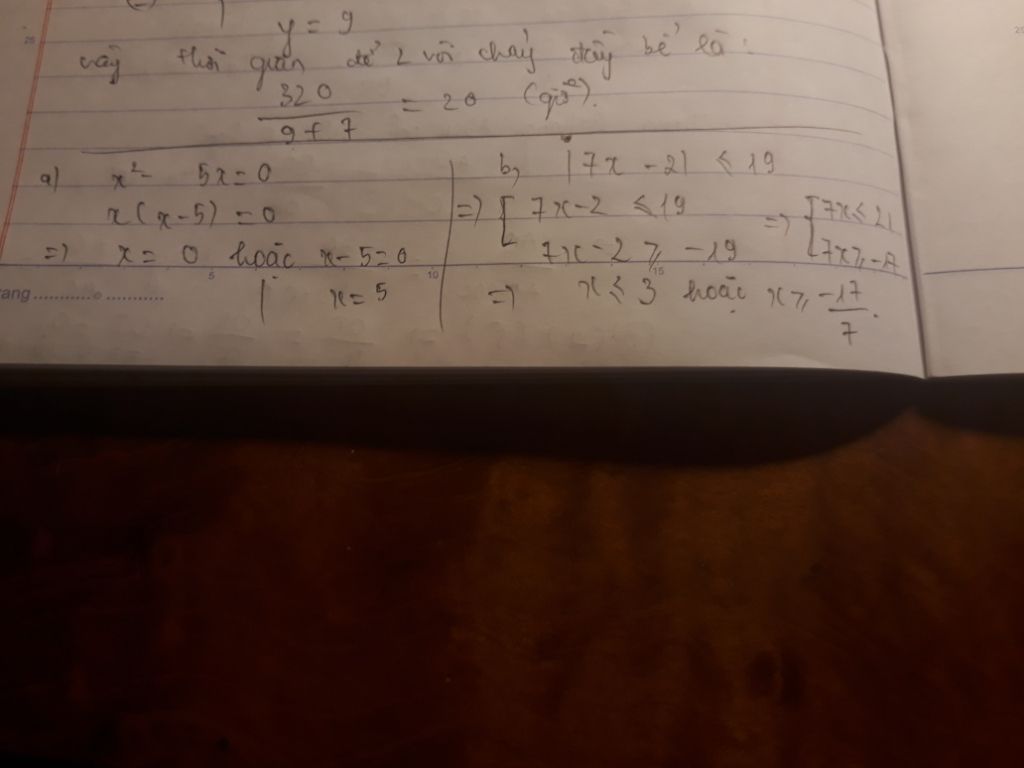 y = 9
vậy thời gian để 2 vòi chảy đầy bể là:
320 / 9+7 = 20 (giờ).
a) x² - 5x = 0
x(x-5) = 0
=) x = 0 hoặc x-5=0
x = 5
b, |7x - 2| ≤ 19
=) [ 7x-2 ≤ 19 =) [ 7x ≤ 21
7x-2 ≥ -19 7x ≥ -17
=) x ≤ 3 hoặc x ≥ -17/7.
ang
5
10
15